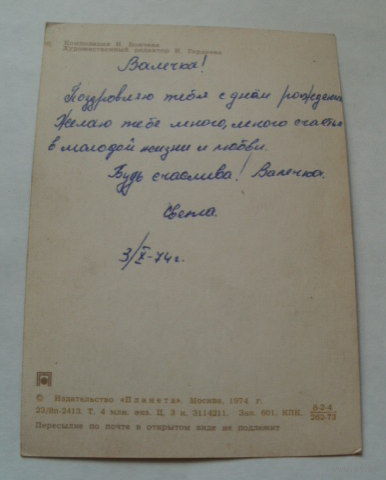 Композиция И.
Художественный редактор И.
Валечка!
Поздровляю тебя с днём рождения
Желаю тебе много, много счастья
в молодой жизни и любви.
Будь счаслива! Валечка.
Света.
3/X-74г.
© Издательство «Планета». Москва, 1974 г.
23/Вп-2413. Т. 4 млн. экз. Ц. 3 к. 3114211. Зак. 601. КПК. 8-2-4
262-73
Пересылке по почте в открытом виде не подлежит